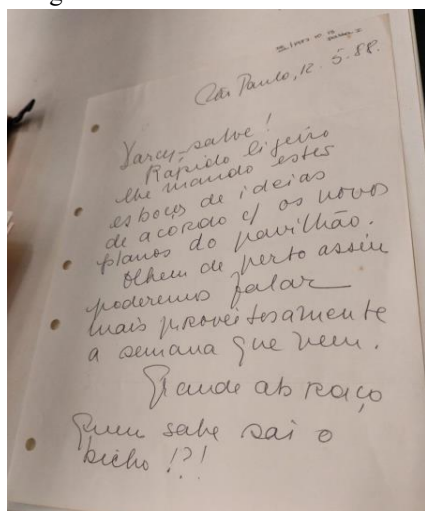 São Paulo, 12.5.88.
Darcy-salve!
Rápido ligeiro
lhe mando estes
esboços de ideias
de acordo c/ os novos
planos do pavilhão.
Olhem de perto assim
poderemos falar
mais proveitosamente
a semana que vem.
Grande abraço
Quem sabe sai o
bicho!?!